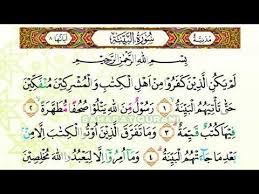 مدنية سورة البينة آياتها ٨
بسم الله الرحمن الرحيم
لم يكن الذين كفروا من اهل الكتب والمشركين منفكين
حتى تأتيهم البينة ١ رسول من الله يتلوا صحفا مطهرة ٢
فيها كتب قيمة ٣ وما تفرق الذين اوتوا الكتب الا من
بعد ما جاءتهم البينة ٤ وما امروا الا ليعبدوا الله مخلصين